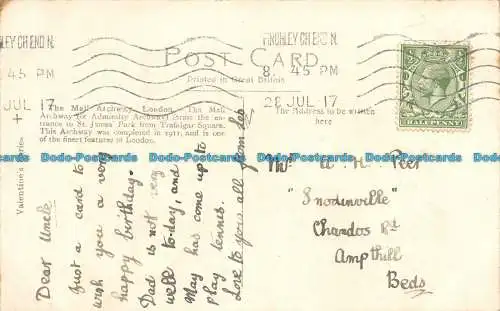 NCHLEY CH END N.
8. 45 PM
28 JUL 17
+
FINCHLEY CH END N.
8. 45 PM
28 JUL 17
POST CARD
Printed in Great Britain
HALFPENNY
The Mall Archway, London. The Mall
Archway (or Admiralty Archway) forms the en-
trance to St. James' Park from Trafalgar Square.
This Archway was completed in 1911, and is one
of the finest features of London.
The Address to be written
here
Valentine's Series
Dear Uncle
Just a card to
wish you a very
happy birthday.
Dad is not very
well to-day, and
May has come up to
play tennis.
Love to you all from
A. H. Peer
"Snodinville"
Chandos Rd
Ampthill
Beds
Dodo-Postcards Dodo-Postcards Dodo-Postcards Dodo-Postcards